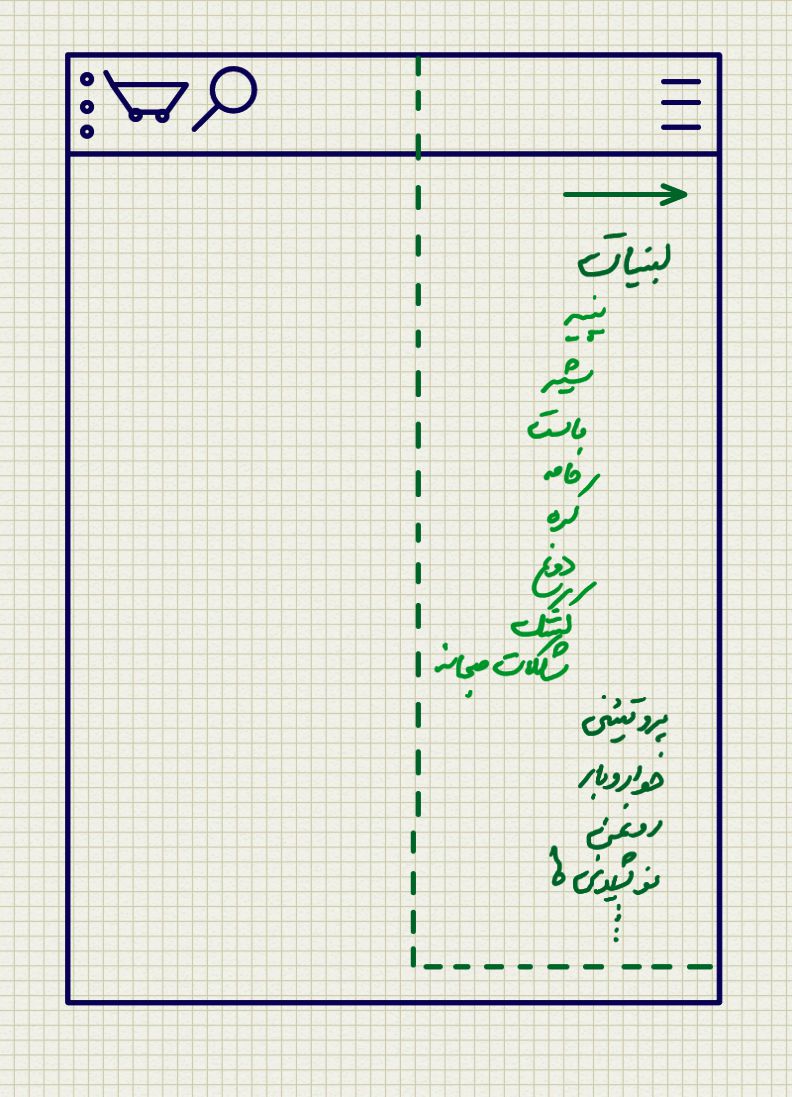 لبنیات
پنیر
شیر
ماست
خامه
کره
دوغ
کشک
شکلات صبحانه
پروتئینی
خواروبار
روغن
نوشیدنی ها